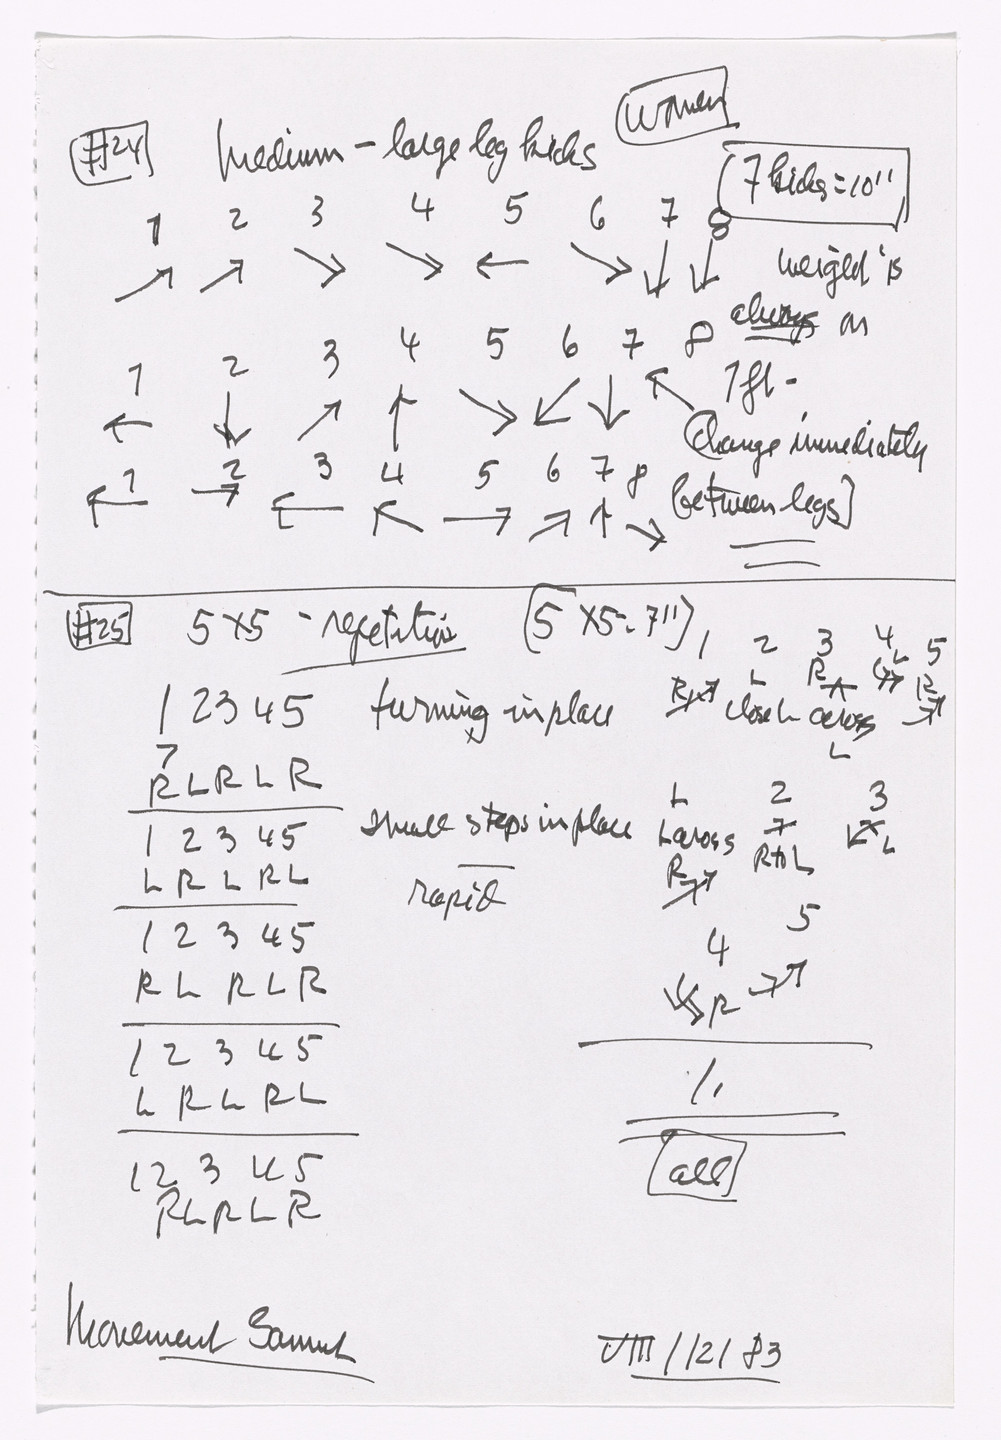 #24 Medium - large leg kicks women
7 kicks = 10"
1 2 3 4 5 6 7 8
↗ ↗ ↘ ↘ ← ↘ ↓ ↓
weight is
always on
1 ft -
change immediately
between legs]
1 2 3 4 5 6 7 8
← ↓ ↗ ↑ ↘ ↙ ↓ ↖
1 2 3 4 5 6 7 8
← → ← ↖ → ↗ ↑ ↘
#25 5x5 - repetition (5 x5 = 7")
1 2 3 4 5 turning in place
R L R L R
1 2 3 4 5 small steps in place
L R L R L rapid
1 2 3 4 5
R L R L R
1 2 3 4 5
L R L R L
1 2 3 4 5
R L R L R
1 2 3 4 5
R L R L R
close L across
L
L 2 3
L across
R R to L L
4 5
R
٪
all
Movement
VIII /12/ 83